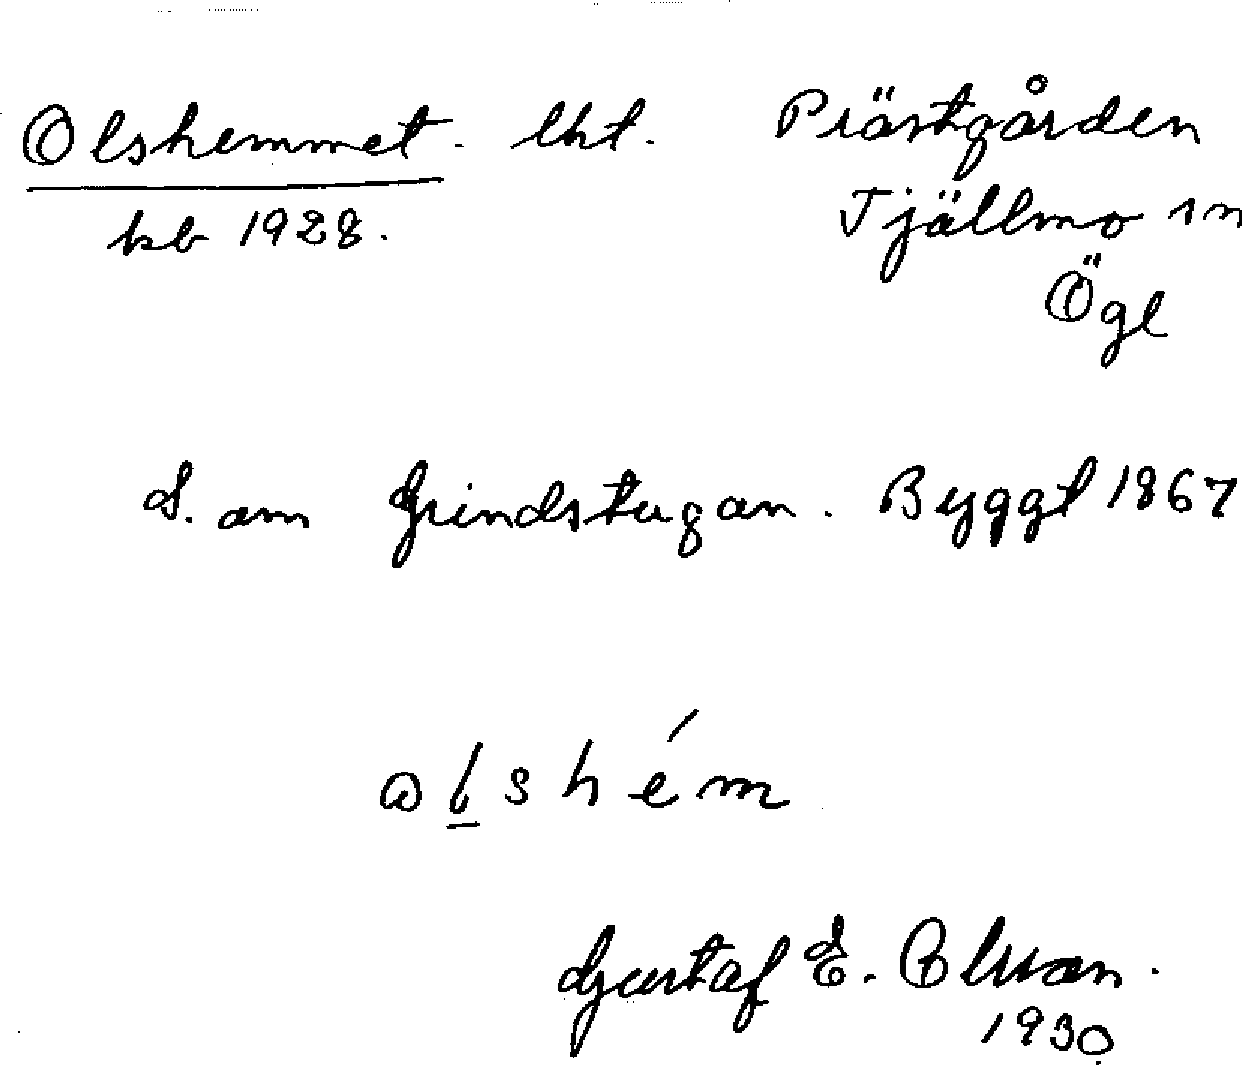 Olshemmet. lht. Prästgården
kb 1928. Tjällmo sn
Ögl
S. om Grindstugan. Byggt 1867
olshém
Gustaf E. Olsson.
1930